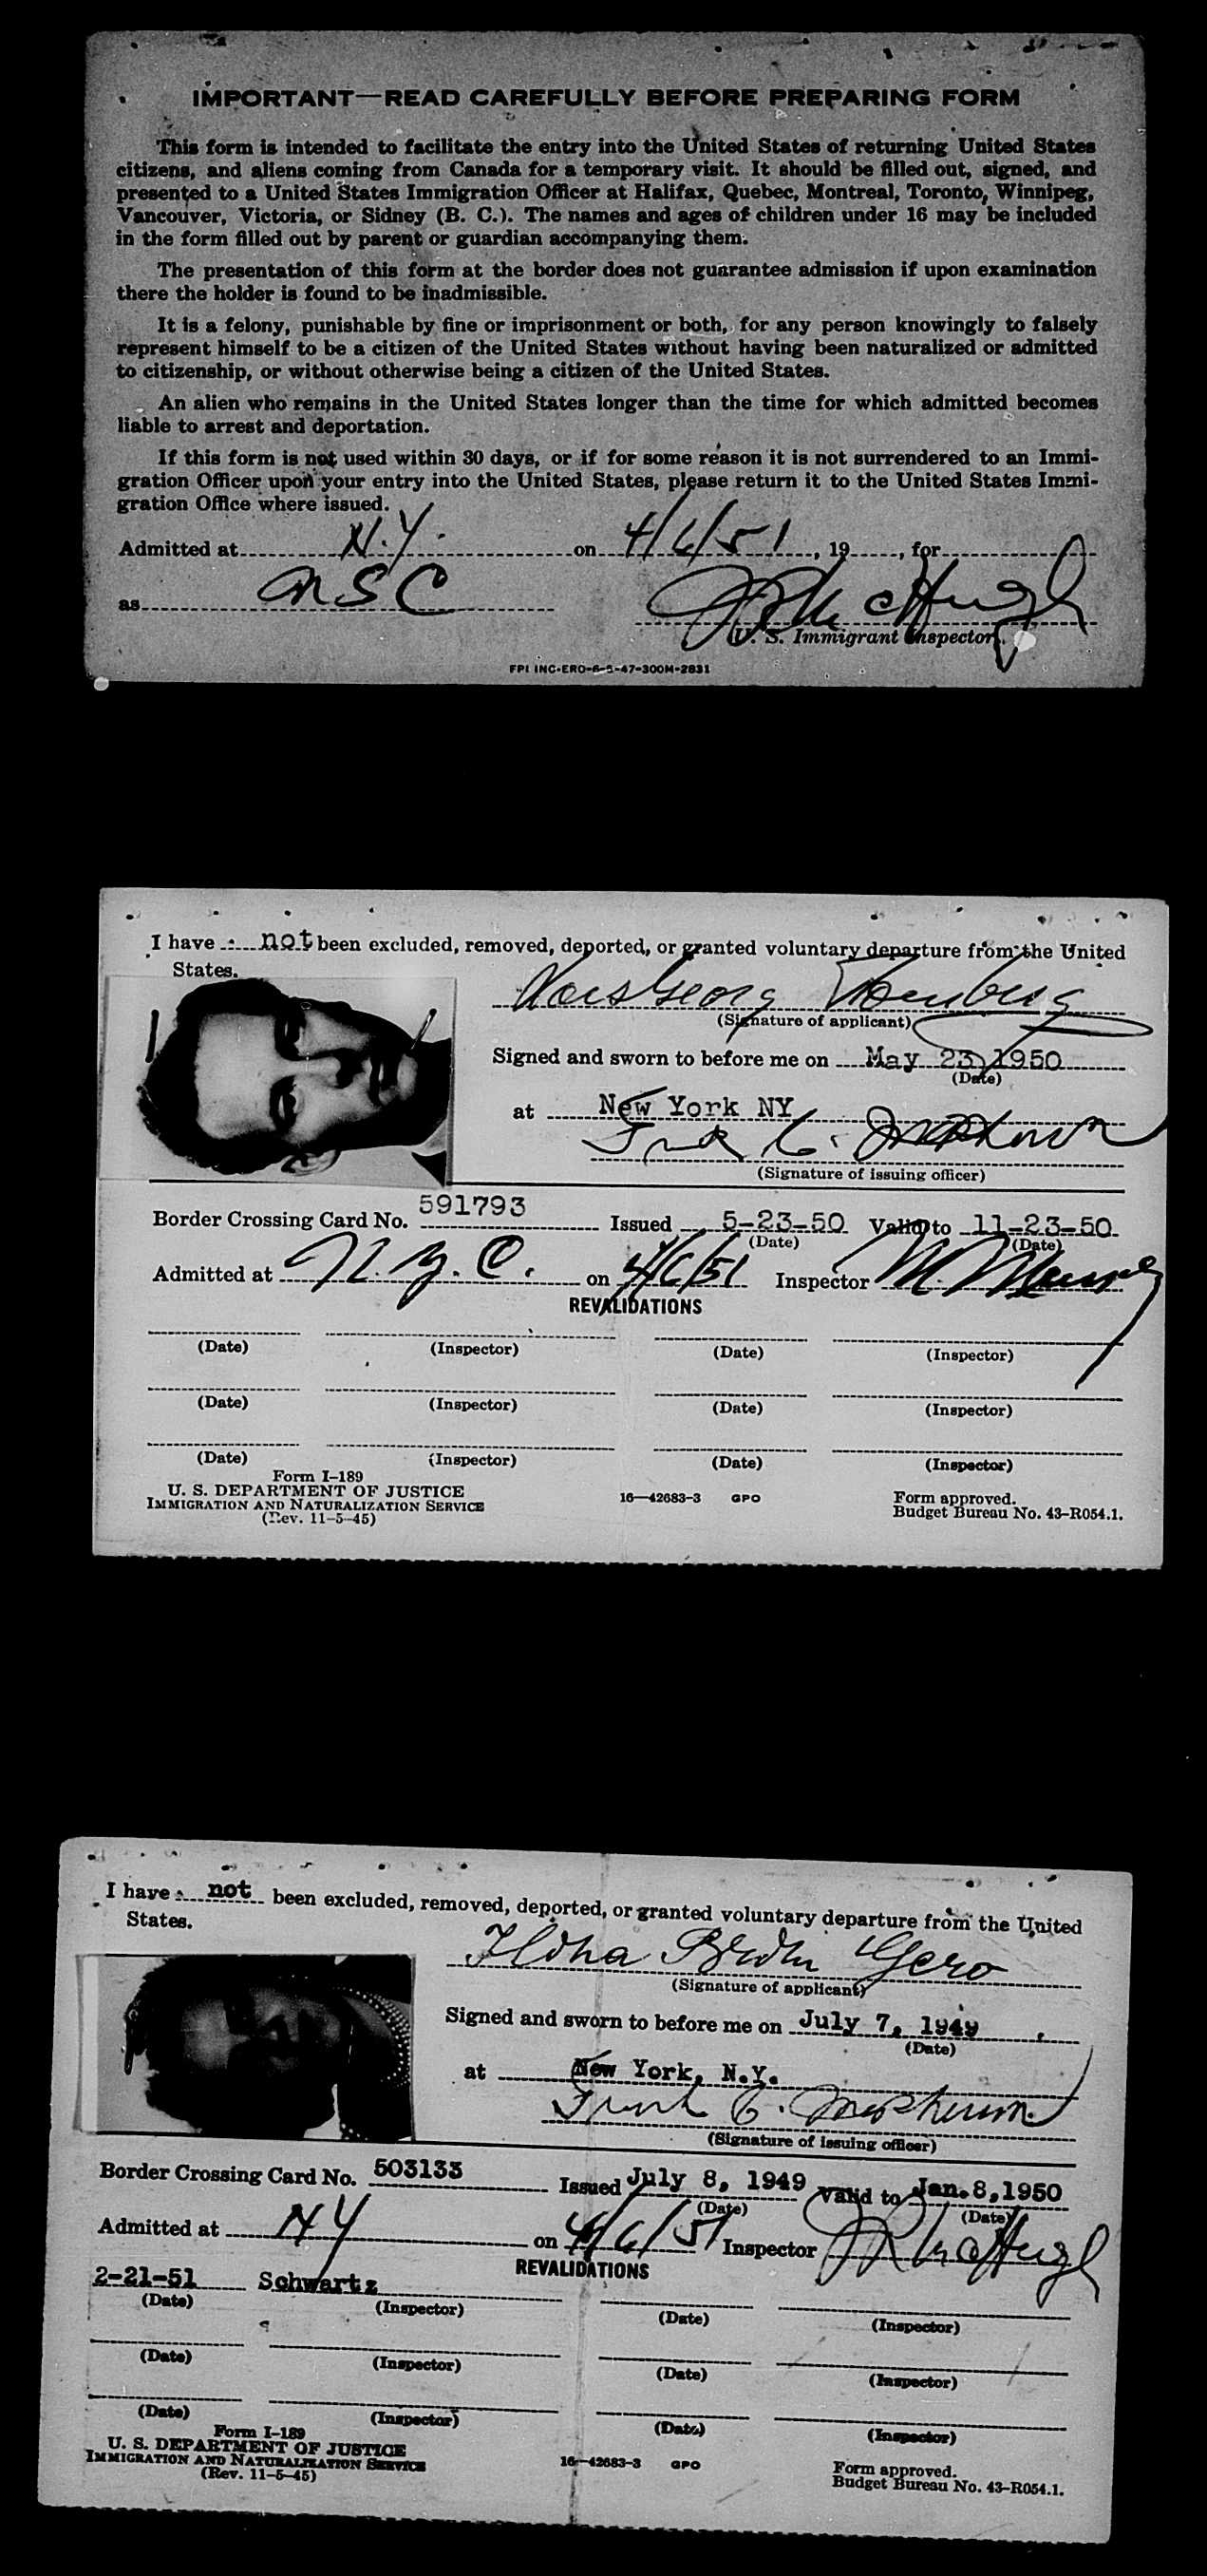 IMPORTANT—READ CAREFULLY BEFORE PREPARING FORM
This form is intended to facilitate the entry into the United States of returning United States
citizens, and aliens coming from Canada for a temporary visit. It should be filled out, signed, and
presented to a United States Immigration Officer at Halifax, Quebec, Montreal, Toronto, Winnipeg,
Vancouver, Victoria, or Sidney (B. C.). The names and ages of children under 16 may be included
in the form filled out by parent or guardian accompanying them.
The presentation of this form at the border does not guarantee admission if upon examination
there the holder is found to be inadmissible.
It is a felony, punishable by fine or imprisonment or both, for any person knowingly to falsely
represent himself to be a citizen of the United States without having been naturalized or admitted
to citizenship, or without otherwise being a citizen of the United States.
An alien who remains in the United States longer than the time for which admitted becomes
liable to arrest and deportation.
If this form is not used within 30 days, or if for some reason it is not surrendered to an Immi-
gration Officer upon your entry into the United States, please return it to the United States Immi-
gration Office where issued.
Admitted at N.Y. on 4/6/51, 19, for
as USC
U. S. Immigrant Inspector.
FPI INC-ERO-6-5-47-300M-2831
I have not been excluded, removed, deported, or granted voluntary departure from the United
States.
(Signature of applicant)
Signed and sworn to before me on May 23, 1950
(Date)
at New York NY
(Signature of issuing officer)
Border Crossing Card No. 591793 Issued 5-23-50 Valid to 11-23-50
(Date) (Date)
Admitted at N.Y.C. on 4/6/51 Inspector
REVALIDATIONS
(Date) (Inspector) (Date) (Inspector)
(Date) (Inspector) (Date) (Inspector)
(Date) (Inspector) (Date) (Inspector)
Form I-189
U. S. DEPARTMENT OF JUSTICE
IMMIGRATION AND NATURALIZATION SERVICE
(Rev. 11-5-45)
16—42683-3 GPO
Form approved.
Budget Bureau No. 43-R054.1.
I have not been excluded, removed, deported, or granted voluntary departure from the United
States.
Ilona Gero
(Signature of applicant)
Signed and sworn to before me on July 7, 1949
(Date)
at New York, N.Y.
(Signature of issuing officer)
Border Crossing Card No. 503133 Issued July 8, 1949 Valid to Jan. 8, 1950
(Date) (Date)
Admitted at NY on 4/6/51 Inspector
REVALIDATIONS
2-21-51 Schwartz
(Date) (Inspector) (Date) (Inspector)
(Date) (Inspector) (Date) (Inspector)
(Date) (Inspector) (Date) (Inspector)
Form I-189
U. S. DEPARTMENT OF JUSTICE
IMMIGRATION AND NATURALIZATION SERVICE
(Rev. 11-5-45)
16—42683-3 GPO
Form approved.
Budget Bureau No. 43-R054.1.